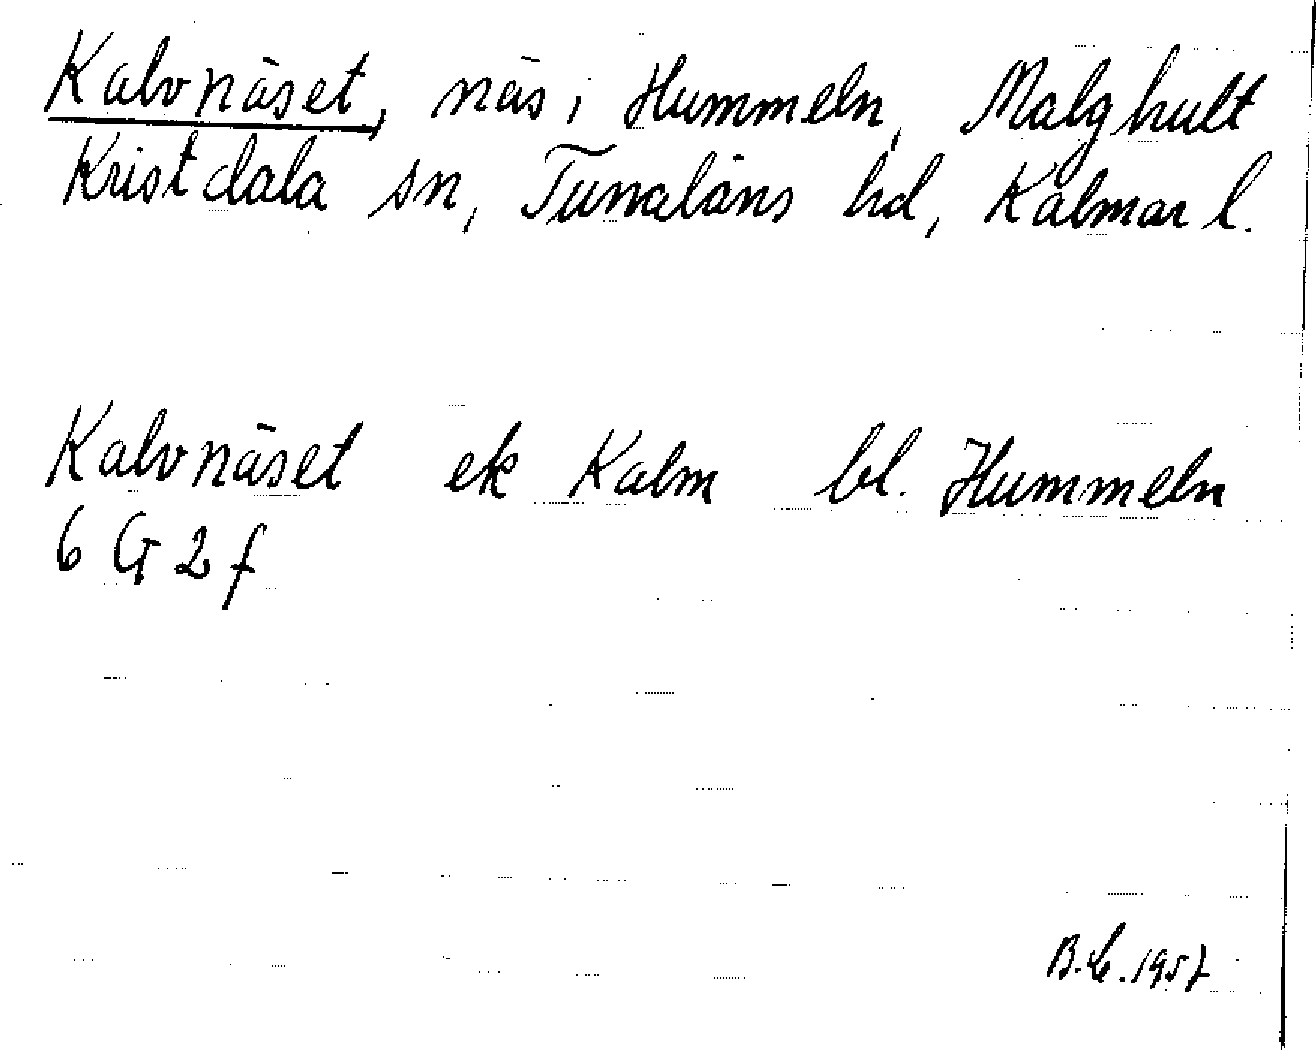 Kalvnäset, näs i Hummeln, Malghult
Kristdala sn, Tunaläns hd, Kalmar l.
Kalvnäset ek Kalm bl. Hummeln
6 G 2 f
1957